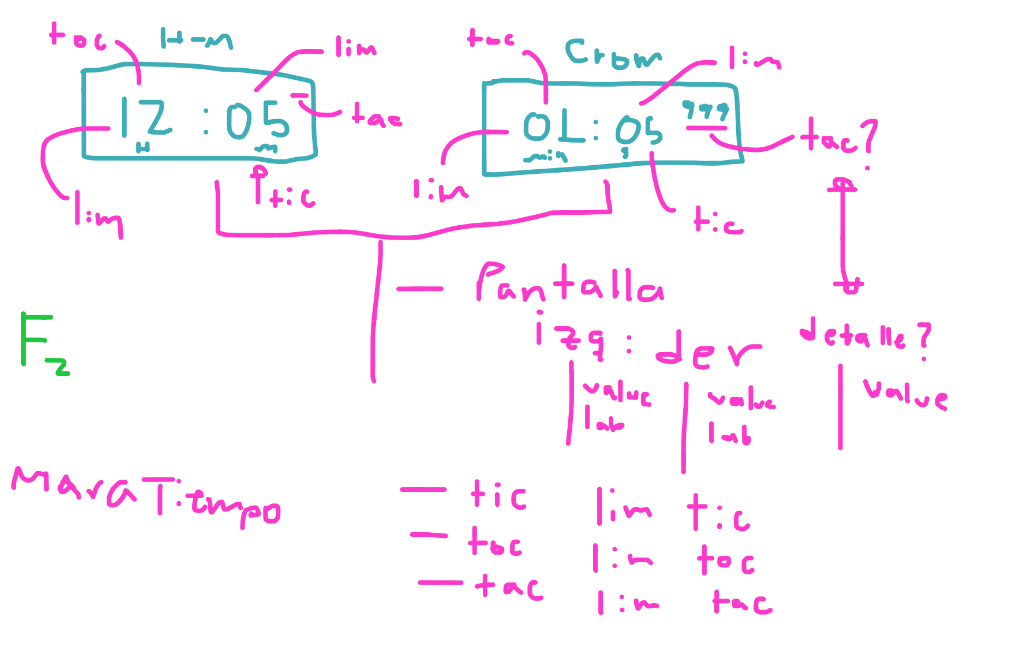 toc
lim
12 : 05
H
m
tac
lim
tic
toc
Crom
lim
01 : 05 999
min
s
tac?
lim
tic
- Pantalla
izq : der
detalle?
value
lab
value
lab
value
F2
MaraTiempo
- tic lim tic
- toc lim toc
- tac lim tac